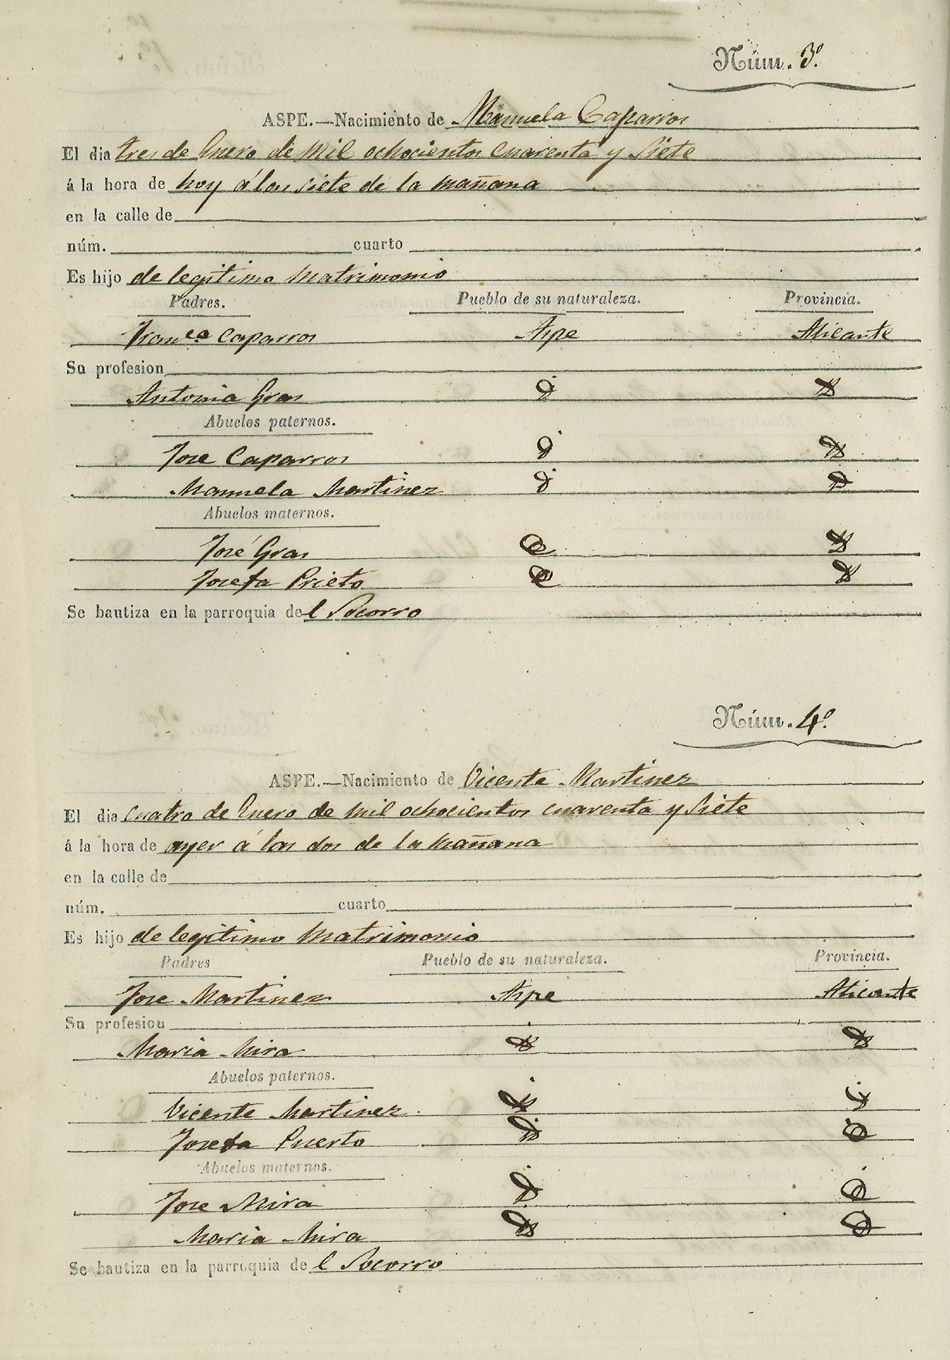 Núm. 3º
ASPE.—Nacimiento de Manuela Caparros
El dia tres de Enero de Mil ochocientos cuarenta y Siete
á la hora de hoy á las siete de la mañana
en la calle de
núm. cuarto
Es hijo de legitimo Matrimonio
Padres. Pueblo de su naturaleza. Provincia.
Franco Caparros Aspe Alicante
Su profesion
Antonia Gras
Abuelos paternos.
Jose Caparros
Manuela Martinez
Abuelos maternos.
José Gras
Josefa Prieto
Se bautiza en la parroquia del Socorro
Núm. 4º
ASPE.—Nacimiento de Vicente Martinez
El dia cuatro de Enero de mil ochocientos cuarenta y Siete
á la hora de ayer á las dos de la mañana
en la calle de
núm. cuarto
Es hijo de legitimo Matrimonio
Padres Pueblo de su naturaleza. Provincia.
Jose Martinez Aspe Alicante
Su profesion
Maria Mira
Abuelos paternos.
Vicente Martinez
Josefa Puerto
Abuelos maternos.
Jose Mira
Maria Mira
Se bautiza en la parroquia de l Socorro